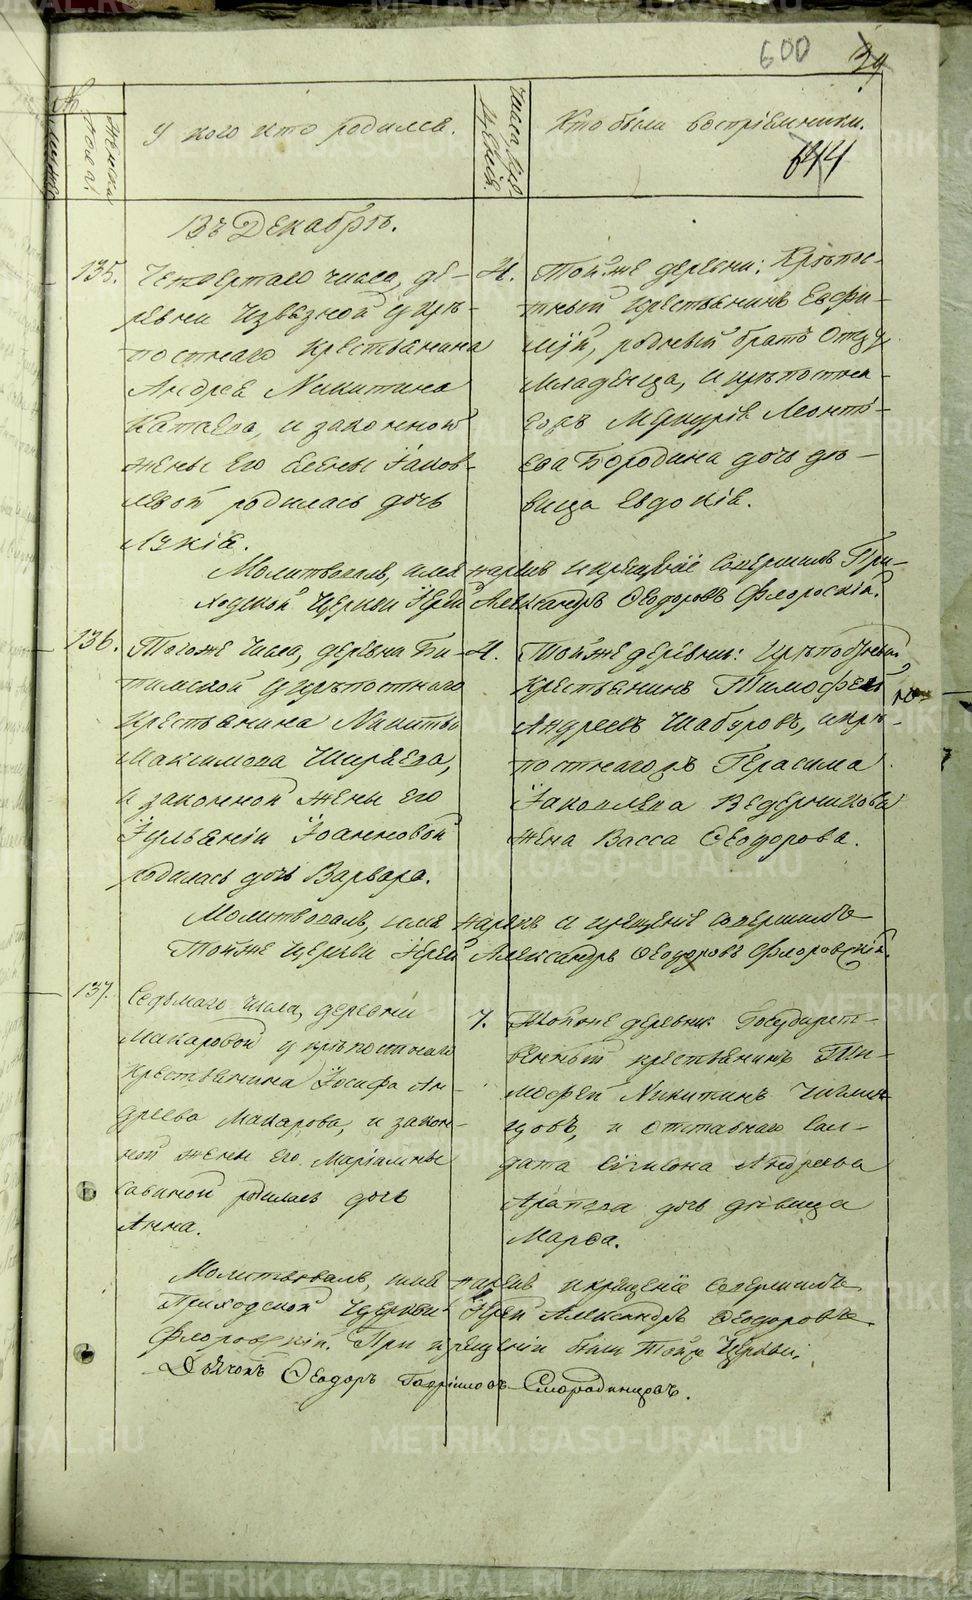 600
39
У кого кто родился.
Числа
Кто были восприемники.
644
Въ Декабрѣ.
135.
Четвертаго числа, де-
ревни Извѣзной у крѣ-
постнаго крестьянина
Андрея Никитина
Катаева, и законной
жены его Елены Іаков-
левой родилась дочь
Лукія.
4.
Той-же деревни: Крѣпос-
тный крестьянинъ Евфи-
мій, родный братъ отцу
младенца, и крѣпостна-
го Меркурія Леонть-
ева Бородина дочь дѣ-
вица Евдокія.
Молитвовалъ, имя нарекъ и крещеніе совершилъ При-
ходской Церкви Іерей Александръ Ѳеодоровъ Флоровскій.
136.
Тогоже числа, деревни Би-
тимской у крѣпостнаго
крестьянина Никиты
Максимова Ширяева,
и законной жены его
Іуліаніи Іоанновой
родилась дочь Варвара.
4.
Тойже деревни: крѣпостный
крестьянинъ Тимофей
Андреевъ Шабуровъ, и крѣ-
постнаго Герасима
Іаковлева Ведерникова
жена Васса Ѳеодорова.
Молитвовалъ, имя нарекъ и крещеніе совершилъ
тойже церкви Іерей Александръ Ѳеодоровъ Флоровскій.
137.
Седьмаго числа, деревни
Макаровой у крѣпостнаго
крестьянина Іосифа Ан-
дреева Макарова, и закон-
ной жены его Маріамны
Савиной родилась дочь
Анна.
7.
Тойже деревни Государст-
венный крестьянинъ Ти-
мофей Никитинъ
и отставнаго сол-
дата Симеона Андреева
Арапова дочь дѣвица
Марѳа.
Молитвовалъ, имя нарекъ и крещеніе совершилъ
Приходской Церкви Іерей Александръ Ѳеодоровъ
Флоровскій. При крещеніи былъ тойже Церкви
Дьячокъ Ѳеодоръ Гавриловъ Смородинцовъ.
METRIKI.GASO-URAL.RU